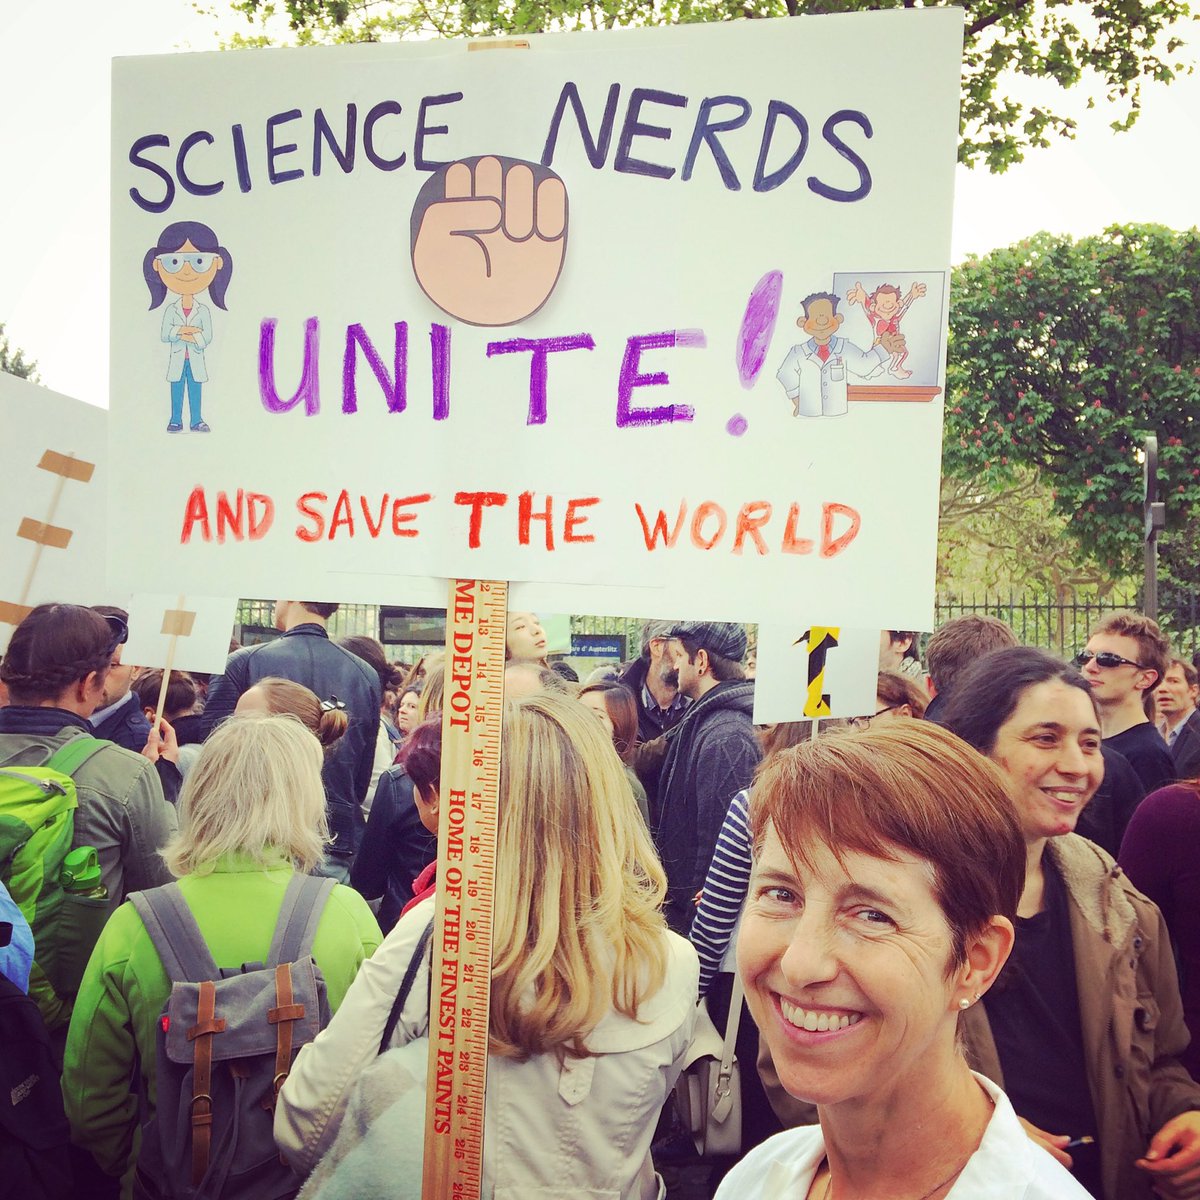 SCIENCE NERDS
UNITE!
AND SAVE THE WORLD
ME DEPOT
HOME OF THE FINEST PAINTS
12
13
14
15
16
17
18
19
20
21
22
23
24
25
26
are d'Austerlitz